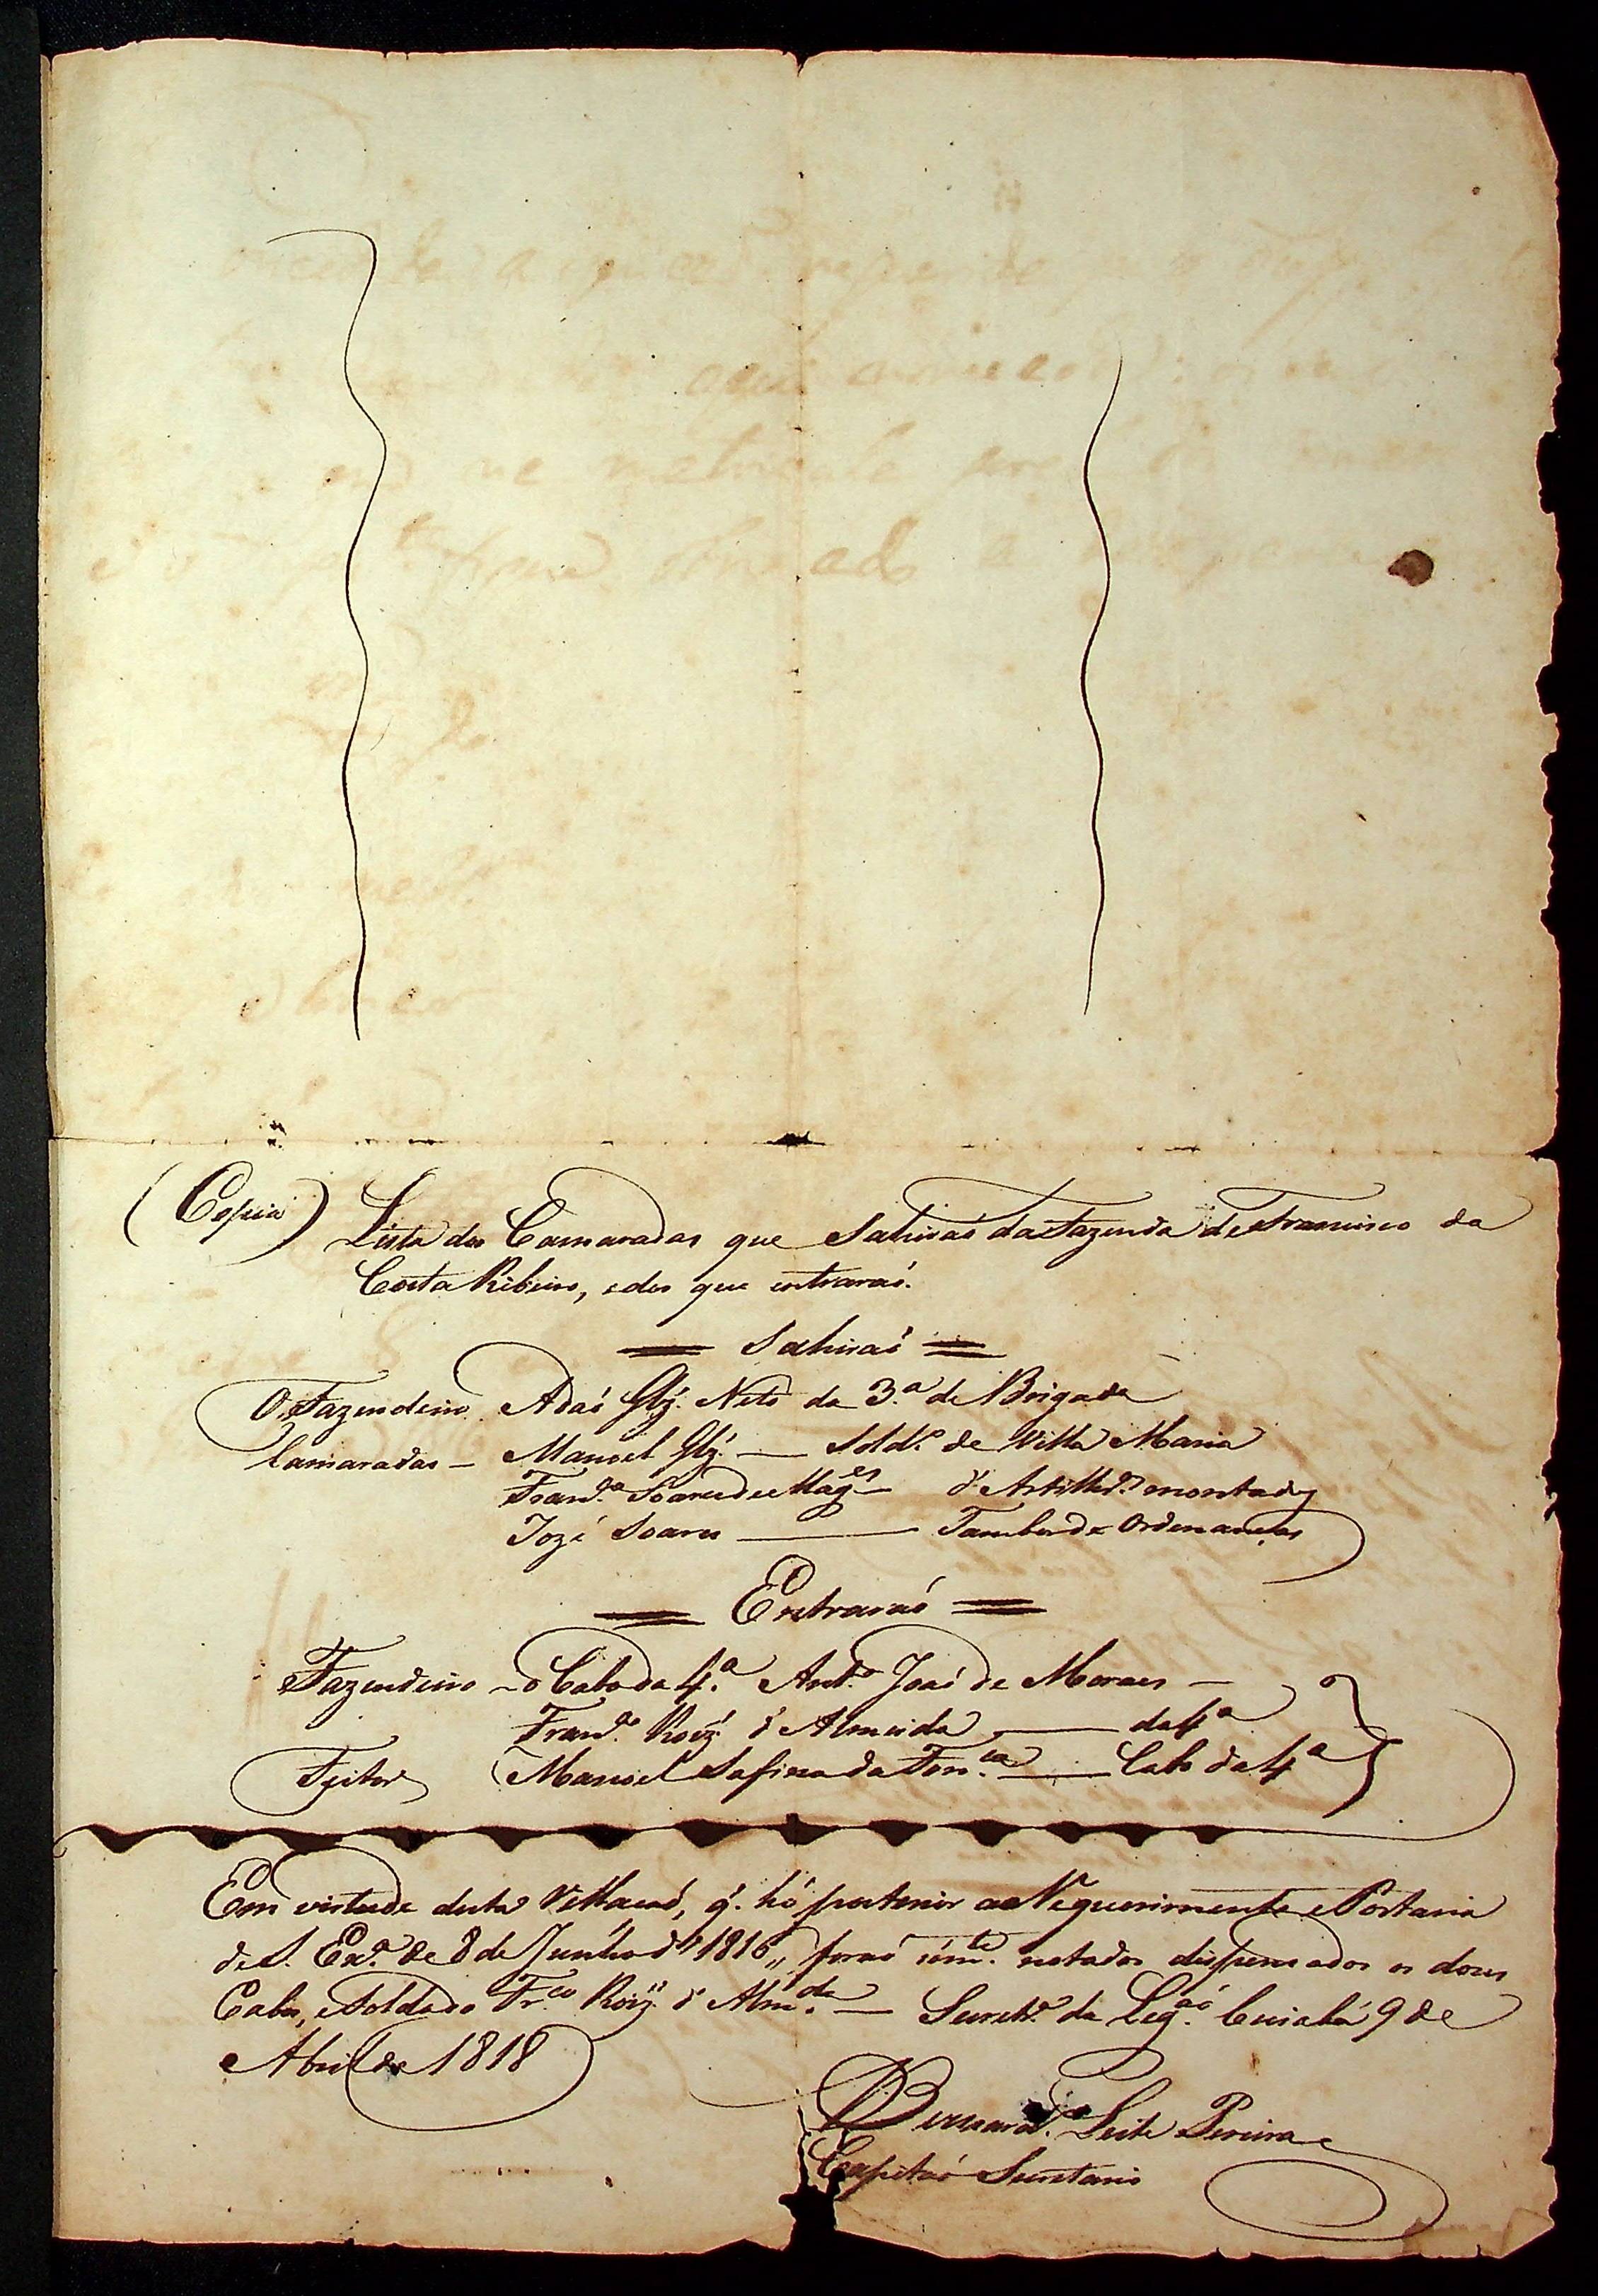 (Copia) Lista dos Camaradas que Sahiraó da Fazenda de Francisco da
Costa Ribeiro, e dos que entraraó.
Sahiraó
O Fazendeiro Adaó Glz.' Neto da 3.ª de Brigada
Camaradas — Manoel Glz.' — Sold.º de Villa Maria
Soares de Mag.es — d'Artilher.ª montada
Jozé Soares — Tambor de Ordenanças
Entraraó
Fazendeiro — o Cabo da 4.ª Ant.º Joaó de Moraes —
Roiz' d'Almeida — da 4ª
Feitor Manoel da Fon.ca — Cabo da 4ª
Em virtude desta q.' hé posterior ao Requerimento e Portaria
de S. Ex.ª de 8 de Junho d' 1816,, foraó sóm.te notados dispensados os dous
Cabos, e Soldado Fr.co Roiz' d' Alm.da — Secretr.ª da Leg.aó Cuiabá 9 de
Abril de 1818
Bernard.º Leite Pereira
Capitaó Secretario